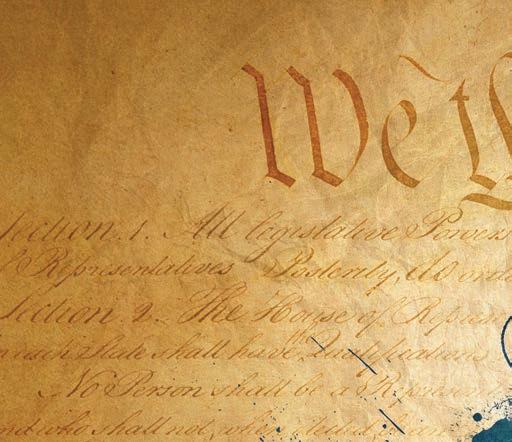 We t
Section. 1. All legislative Powers
Representatives Posterity, do orda
Section. 2. The House of Repres
each State shall have Qualifications
No Person shall be a Represent
and who shall not,